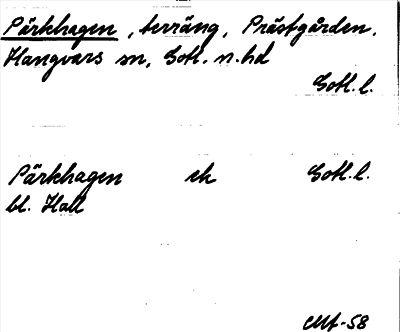 Pärkhagen, terräng, Prästgården,
Hangvars sn, Gotl. n. hd
Gotl. l.
Pärkhagen ek Gotl. l.
bl. Hall
-58